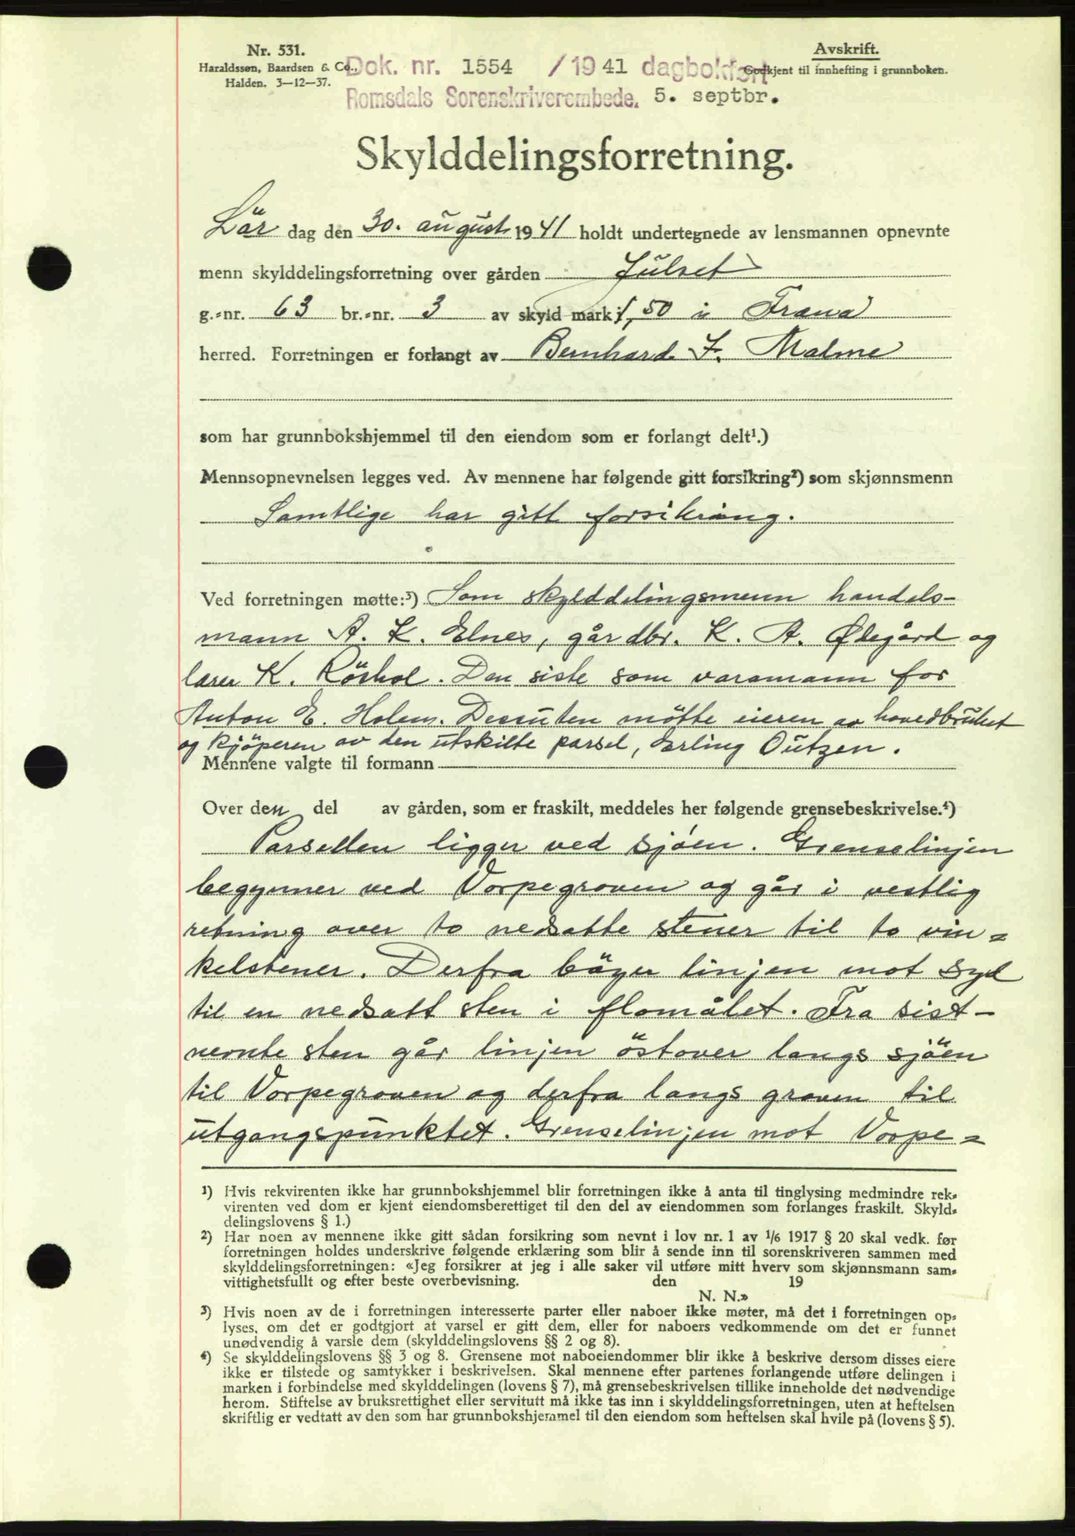 Nr. 531.
Haraldssøn, Baardsen & Co.,
Halden. 3—12—37.
Avskrift.
Godkjent til innhefting i grunnboken.
Dok. nr. 1554 /1941 dagbokført
Romsdals Sorenskriverembede. 5. septbr.
Skylddelingsforretning.
Lör dag den 30. august 1941 holdt undertegnede av lensmannen opnevnte
menn skylddelingsforretning over gården Julset
g.-nr. 63 br.-nr. 3 av skyld mark 1,50 i Fræna
herred. Forretningen er forlangt av Bernhard F. Malme
som har grunnbokshjemmel til den eiendom som er forlangt delt¹.)
Mennsopnevnelsen legges ved. Av mennene har følgende gitt forsikring²) som skjønnsmenn
Samtlige har gitt forsikring.
Ved forretningen møtte:³) Som skylddelingsmenn handels-
mann A. K. Elnes, gårdbr. K. A. Ødegård og
lærer K. Rörhol. Den siste som varamann for
Anton E. Holem. Dessuten møtte eieren av hovedbruket
og kjöperen av den utskilte parsel, Erling Outzen.
Mennene valgte til formann
Over den del av gården, som er fraskilt, meddeles her følgende grensebeskrivelse.⁴)
Parsellen ligger ved sjöen. Grenselinjen
begynner ved Vorpegroven og går i vestlig
retning over to nedsatte stener til to vin=
kelstener. Derfra böyer linjen mot syd
til en nedsatt sten i flomålet. Fra sist-
nevnte sten går linjen östover langs sjöen
til Vorpegroven og derfra langs groven til
utgangspunktet. Grenselinjen mot Vorpe=
¹) Hvis rekvirenten ikke har grunnbokshjemmel blir forretningen ikke å anta til tinglysing medmindre rek-
virenten ved dom er kjent eiendomsberettiget til den del av eiendommen som forlanges fraskilt. Skyld-
delingslovens § 1.)
²) Har noen av mennene ikke gitt sådan forsikring som nevnt i lov nr. 1 av 1/6 1917 § 20 skal vedk. før
forretningen holdes underskrive følgende erklæring som blir å sende inn til sorenskriveren sammen med
skylddelingsforretningen: «Jeg forsikrer at jeg i alle saker vil utføre mitt hverv som skjønnsmann sam-
vittighetsfullt og efter beste overbevisning. den 19
N. N.»
³) Hvis noen av de i forretningen interesserte parter eller naboer ikke møter, må det i forretningen op-
lyses, om det er godtgjort at varsel er gitt dem, eller for naboers vedkommende om det er funnet
unødvendig å varsle dem (skylddelingslovens §§ 2 og 8).
⁴) Se skylddelingslovens §§ 3 og 8. Grensene mot naboeiendommer blir ikke å beskrive dersom disses eiere
ikke er tilstede og samtykker i beskrivelsen. Skal mennene efter partenes forlangende utføre delingen i
marken i forbindelse med skylddelingen (lovens § 7), må grensebeskrivelsen tillike inneholde det nødvendige
herom. Stiftelse av bruksrettighet eller servitutt må ikke tas inn i skylddelingsforretningen, uten at heftelsen
skriftlig er vedtatt av den som har grunnbokshjemmel til den eiendom som heftelsen skal hvile på (lovens § 5).